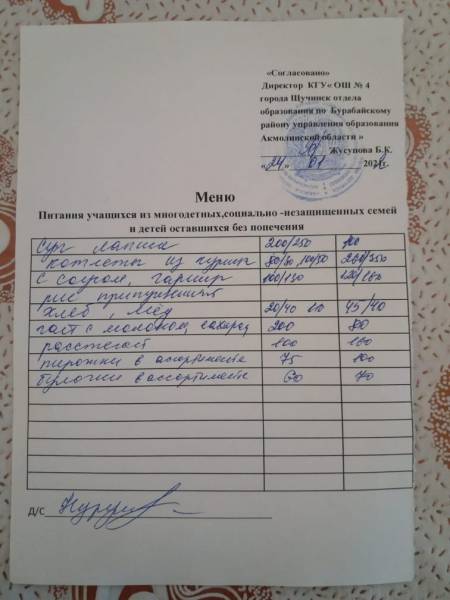 «Согласовано»
Директор КГУ« ОШ № 4
города Щучинск отдела
образования по Бурабайскому
району управления образования
Акмолинской области »
Жусупова Б.К.
«24» 01 202 г.
Меню
Питания учащихся из многодетных,социально -незащищенных семей
и детей оставшихся без попечения
Суп лапша 200/250
котлеты из курицы 80/80
с соусом, гарнир
рис припущенный
хлеб, 20/40 45/40
с молоком, 200 80
100 160
пирожки в ассортименте 75 100
булочки в ассортименте 60 70
Д/С